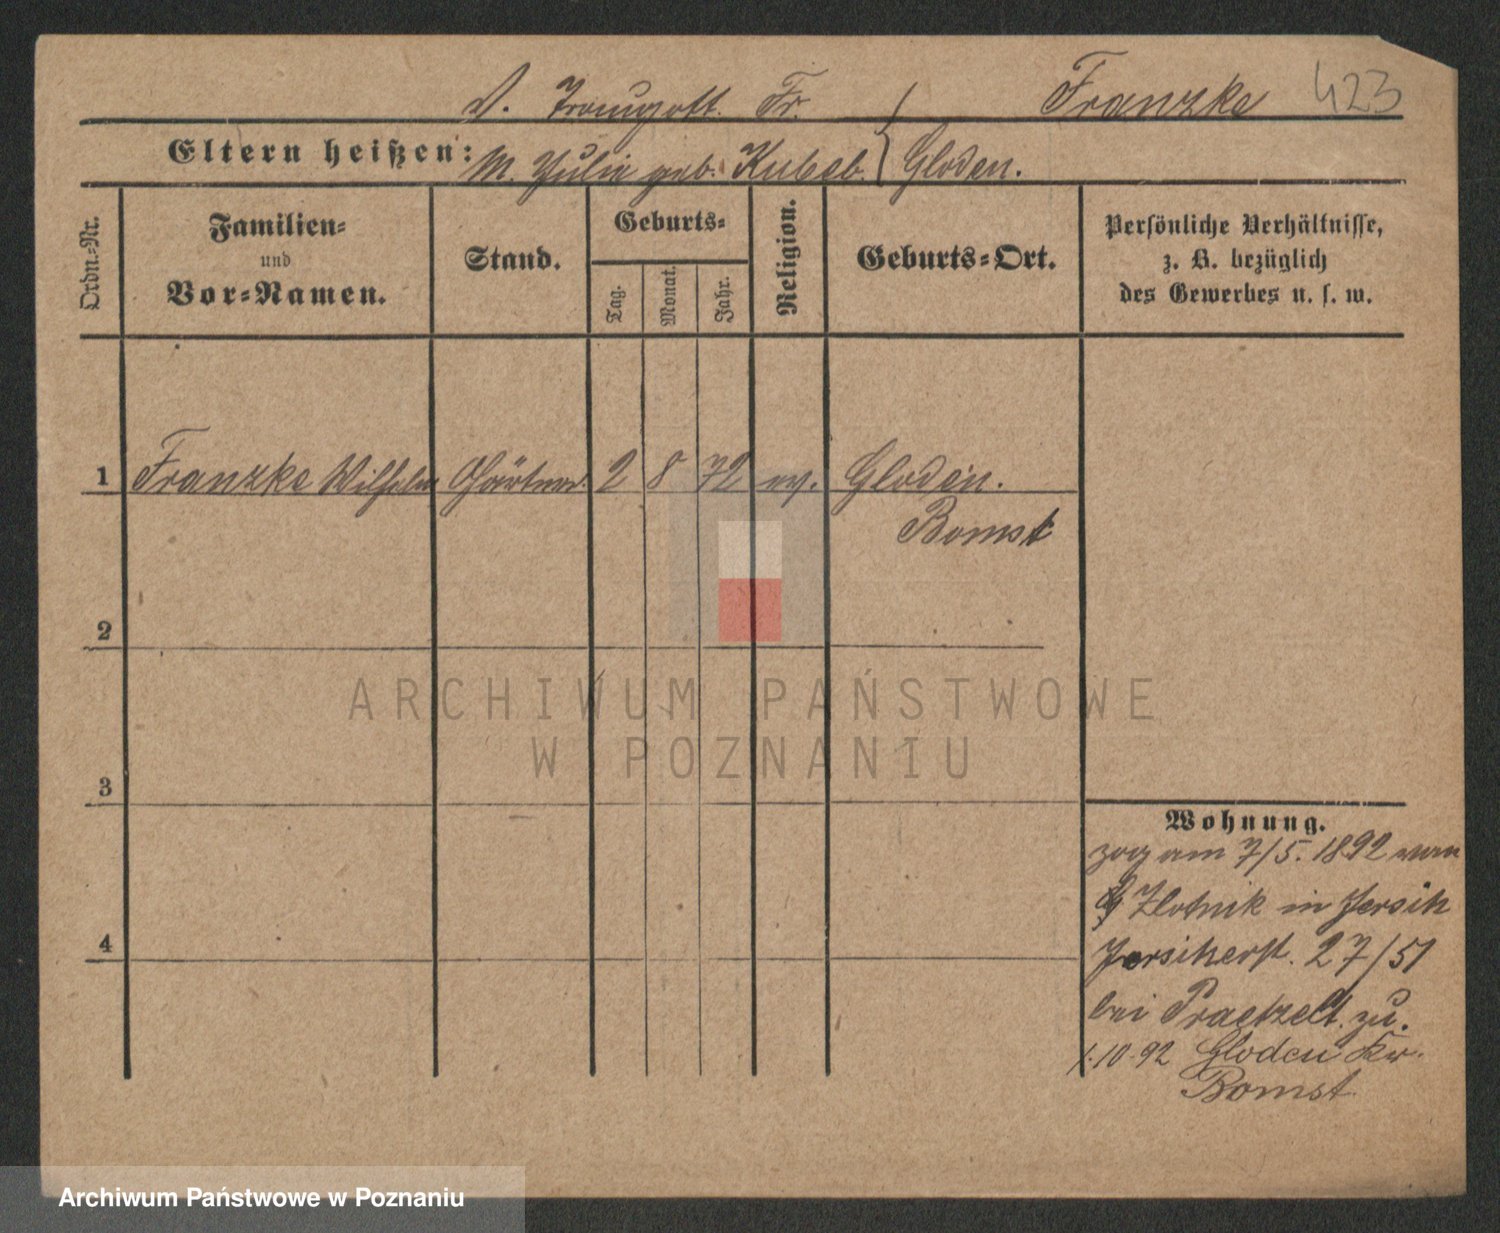 V. Traugott Fr. Franzke 423
Eltern heißen: M. Julie geb. Kubeb. Gloden.
Ordn.-Nr.
Familien-
und
Vor-Namen.
Stand.
Geburts-
Tag.
Monat.
Jahr.
Religion.
Geburts-Ort.
Persönliche Verhältnisse,
z. B. bezüglich
des Gewerbes u. s. w.
1 Franzke Wilhelm Gärtner. 2 8 72 ev. Gloden.
Bomst
2
3
4
Wohnung.
zog am 7/5. 1892 von
Zlotnik in Jersitz
Jersitzerst. 27/51
bei Praetzelt zu.
1.10.92 Gloden Kr.
Bomst
ARCHIWUM PAŃSTWOWE
W POZNANIU
Archiwum Państwowe w Poznaniu